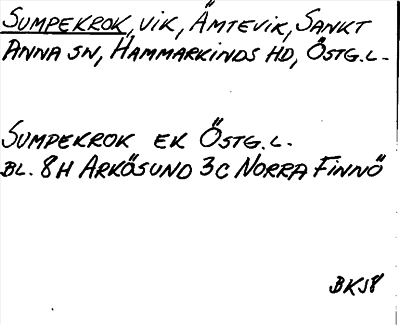 SUMPEKROK, VIK, ÄMTEVIK, SANKT
ANNA SN, HAMMARKINDS HD, ÖSTG.L.
SUMPEKROK EK ÖSTG.L.
BL. 8H ARKÖSUND 3C NORRA FINNÖ
BKJ8